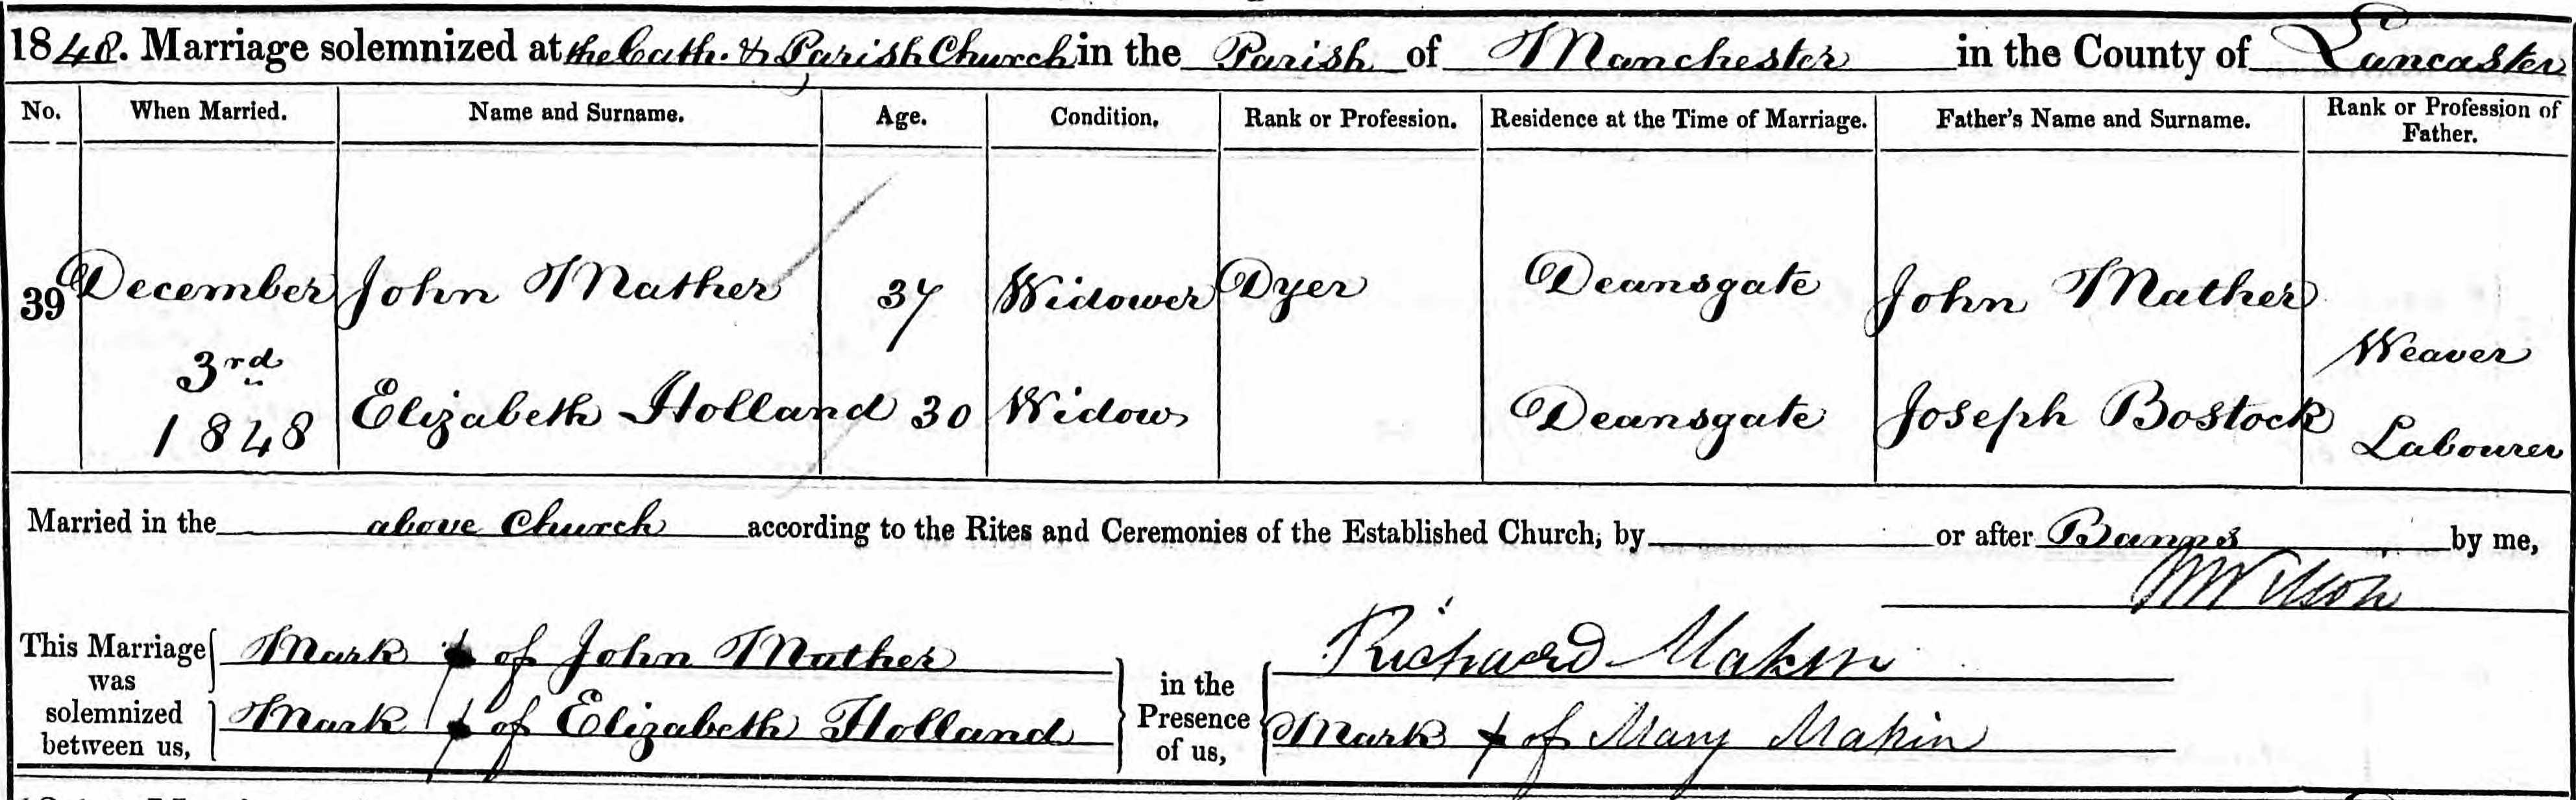 1848. Marriage solemnized at the Cath. & Parish Church in the Parish of Manchester in the County of Lancaster
No. When Married. Name and Surname. Age. Condition. Rank or Profession. Residence at the Time of Marriage. Father's Name and Surname. Rank or Profession of Father.
39 December John Mather 37 Widower Dyer Deansgate John Mather Weaver
3rd
1848 Elizabeth Holland 30 Widow Deansgate Joseph Bostock Labourer
Married in the above Church according to the Rites and Ceremonies of the Established Church, by or after Banns by me,
Wilson
This Marriage was solemnized between us,
Mark + of John Mather
Mark + of Elizabeth Holland
in the Presence of us,
Richard Makin
Mark + of Mary Makin